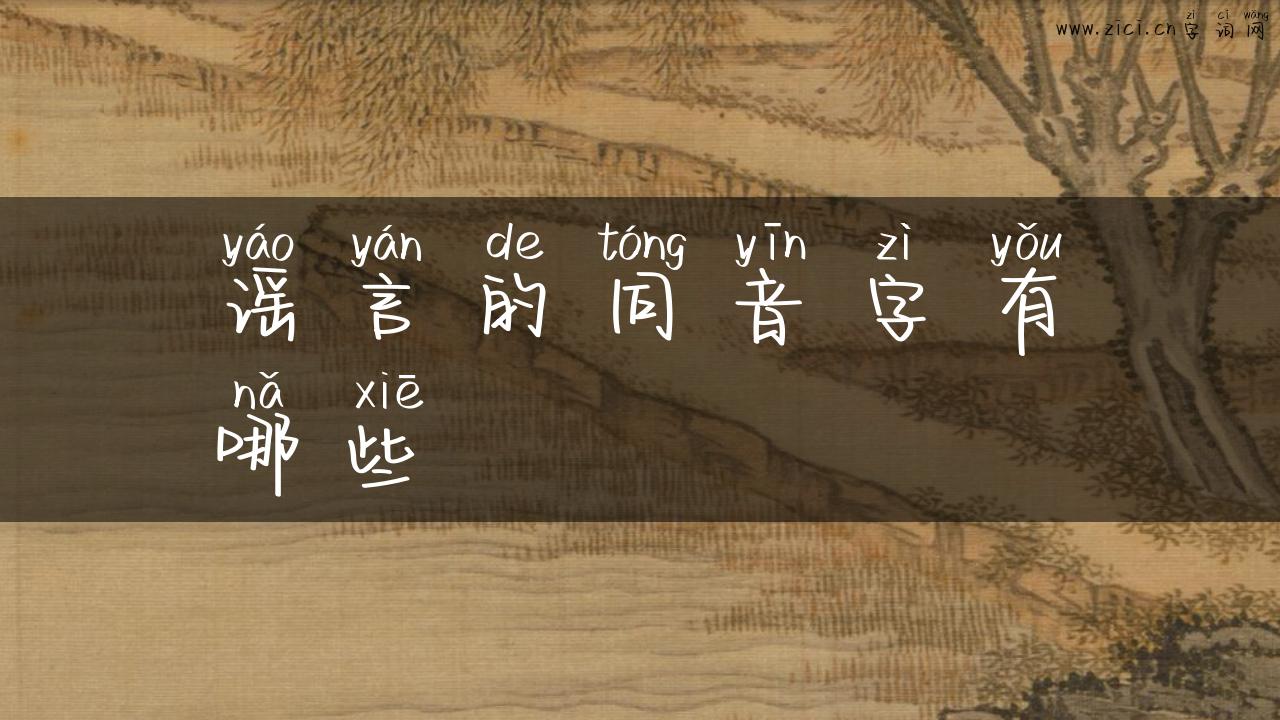 zì cí wǎng
www.zici.cn 字 词 网
yáo yán de tóng yīn zì yǒu
谣 言 的 同 音 字 有
nǎ xiē
哪 些